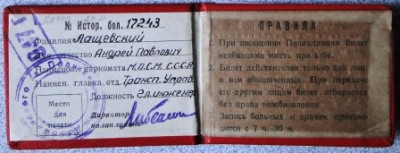 № Истор. бол. 17243
Фамилия Лащевский
Андрей Павлович
наркомата М.П.С.М. С.С.С.Р.
Наимен. главка, отд. Трансп. Управ.
Должность Гл. инженер
Место
для
печати
Директор
поликлиники
ПРАВИЛА
При посещении Поликлиники билет
необходимо иметь при себе.
Билет действителен только для лиц,
в нем обозначенных. При передаче
его другим лицам билет отбирается
без права возобновления.
Запись больных к врачам производится
с 7 ч. 30 м.